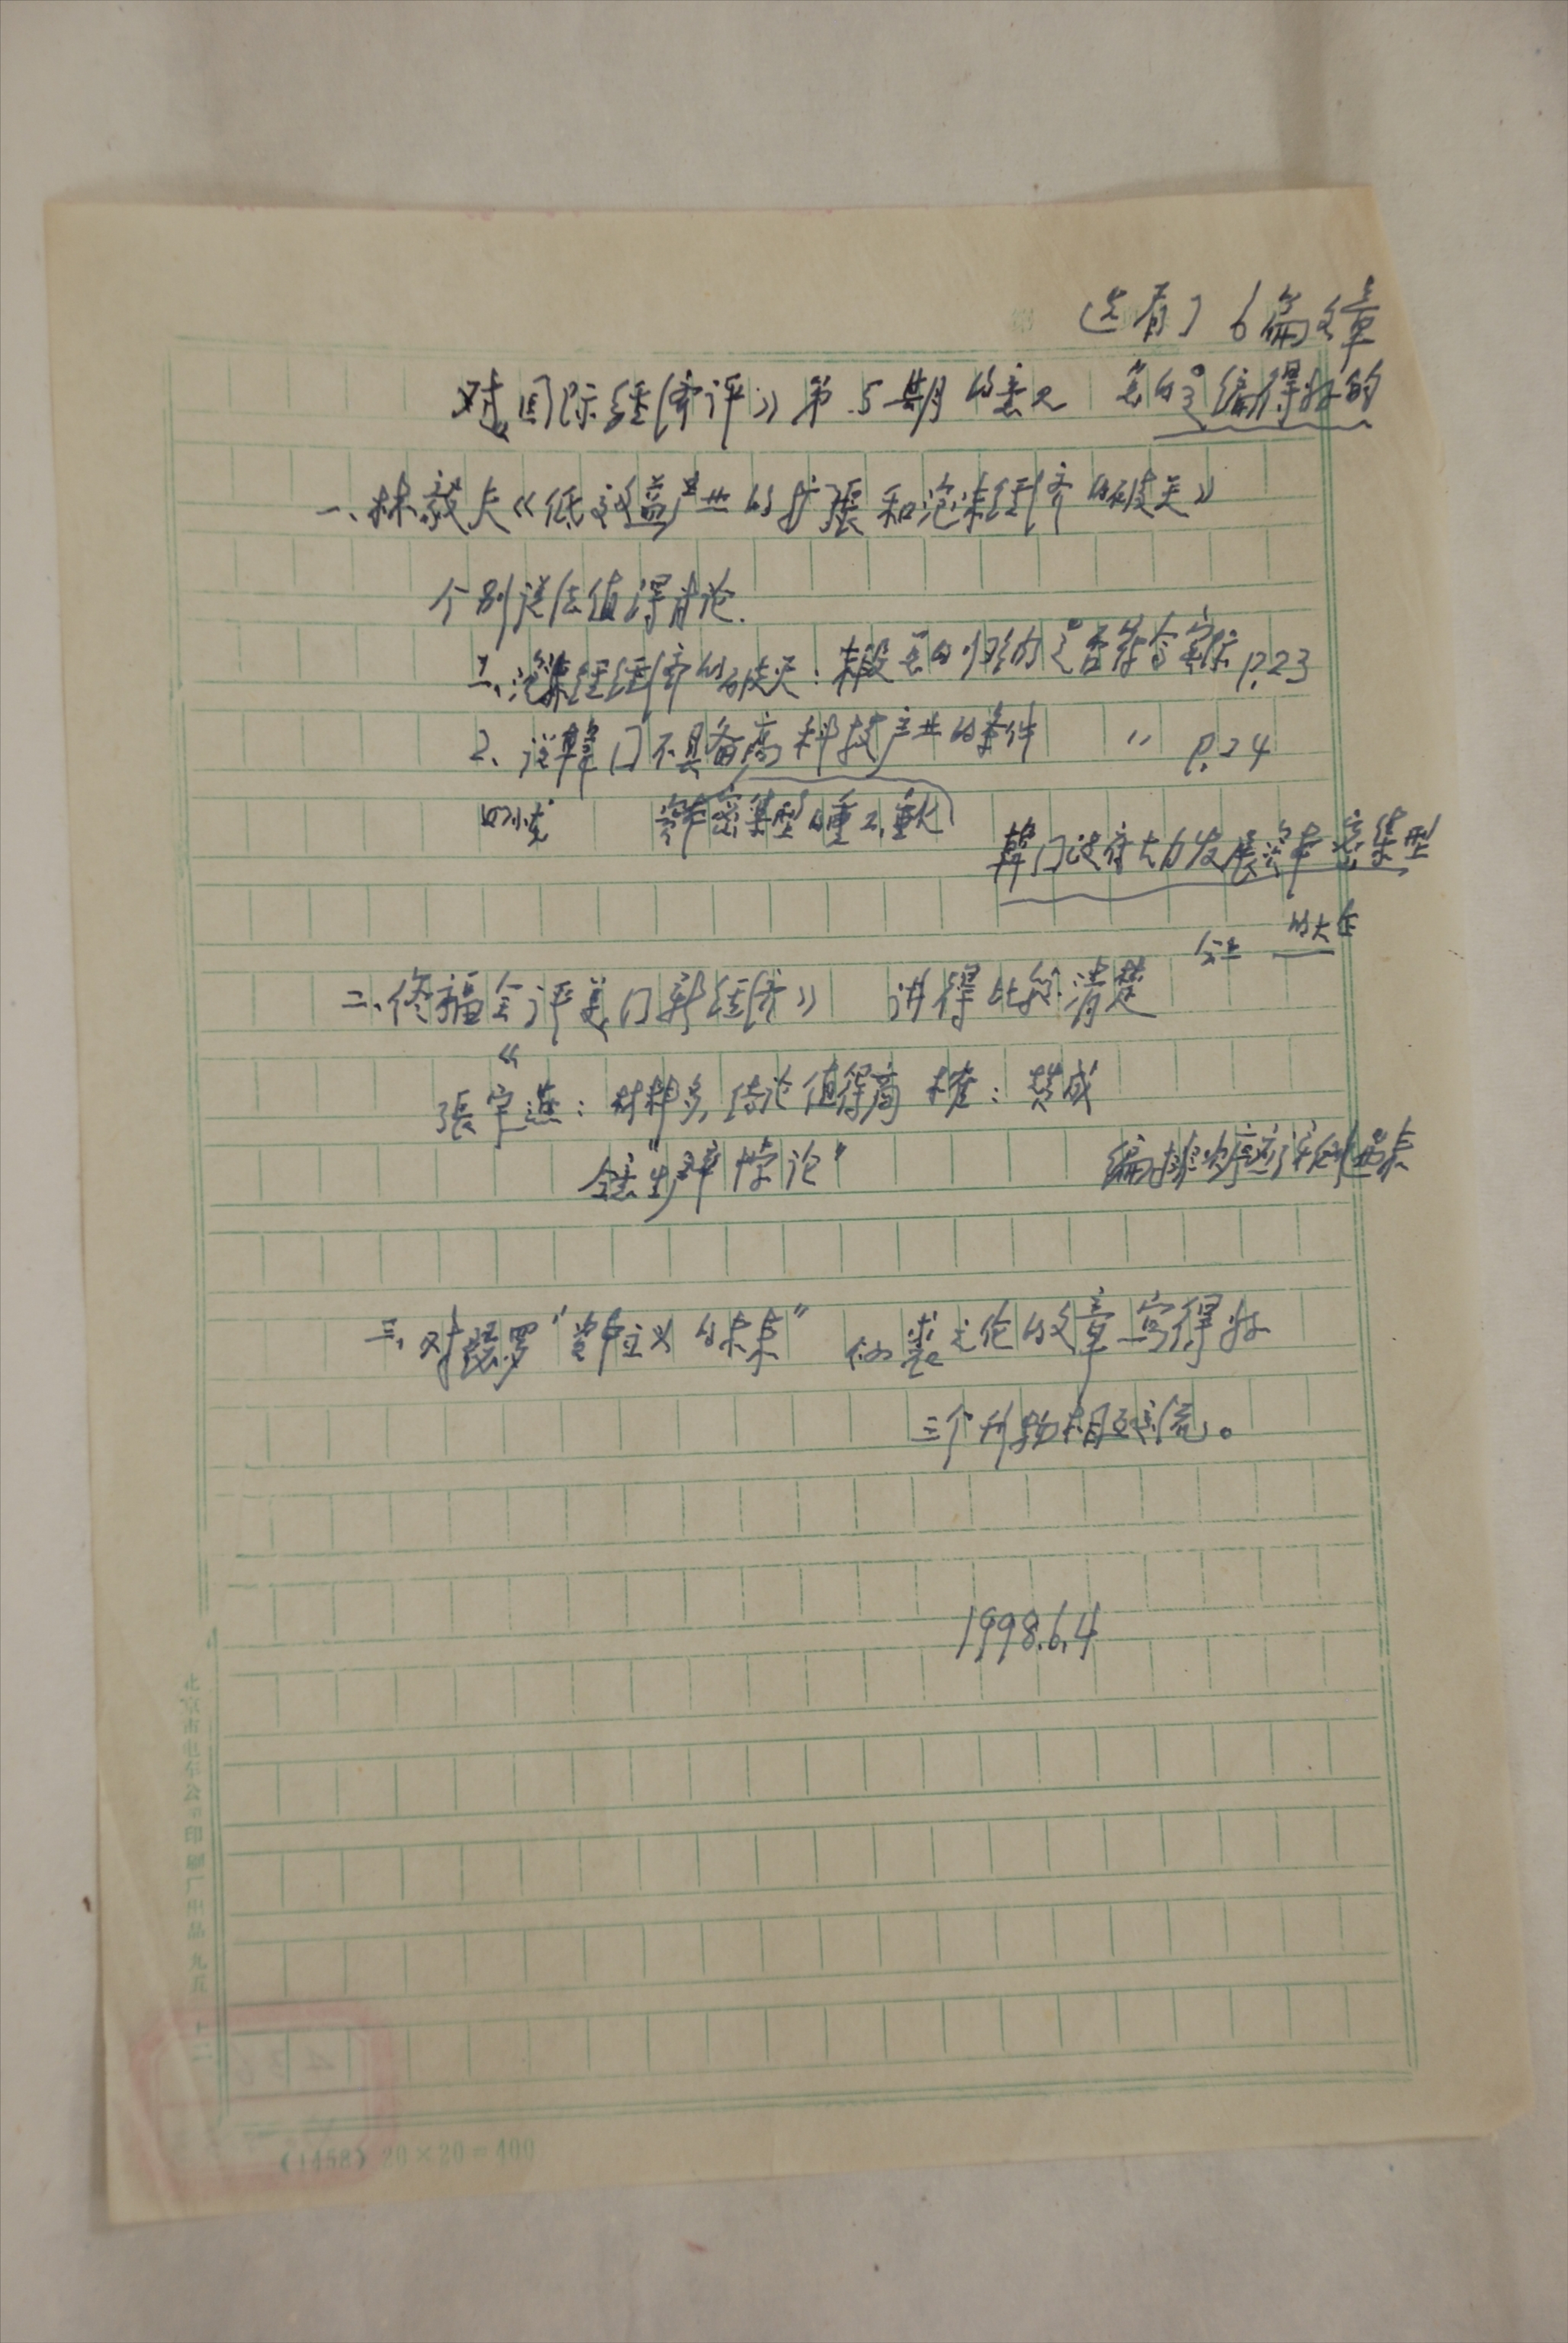 选看了6篇文章
对《国际经济评》第5期的意见 总的是编得好的
一、林毅夫《低效益产业的扩张和泡沫经济的破灭》
个别说法值得讨论.
1、泡沫经济的破灭：末段总的归纳是否符合实际 P.23
2、说韩国不具备高科技产业的条件 〃 P.24
四小龙 资本密集型的重工、重化
韩国没有大力发展资本密集型
的大企
二、佟福全《评美国新经济》 讲得比较清楚
張宇燕：材料多，结论值得商榷：赞成
“生产率悖论”
编排次序
三、对瑟罗“资本主义的未来” 仇、裘元伦的文章写得好
三个刊物相互交流。
1998.6.4
北京市电车公司印刷厂出品 九五
(1458) 20×20=400